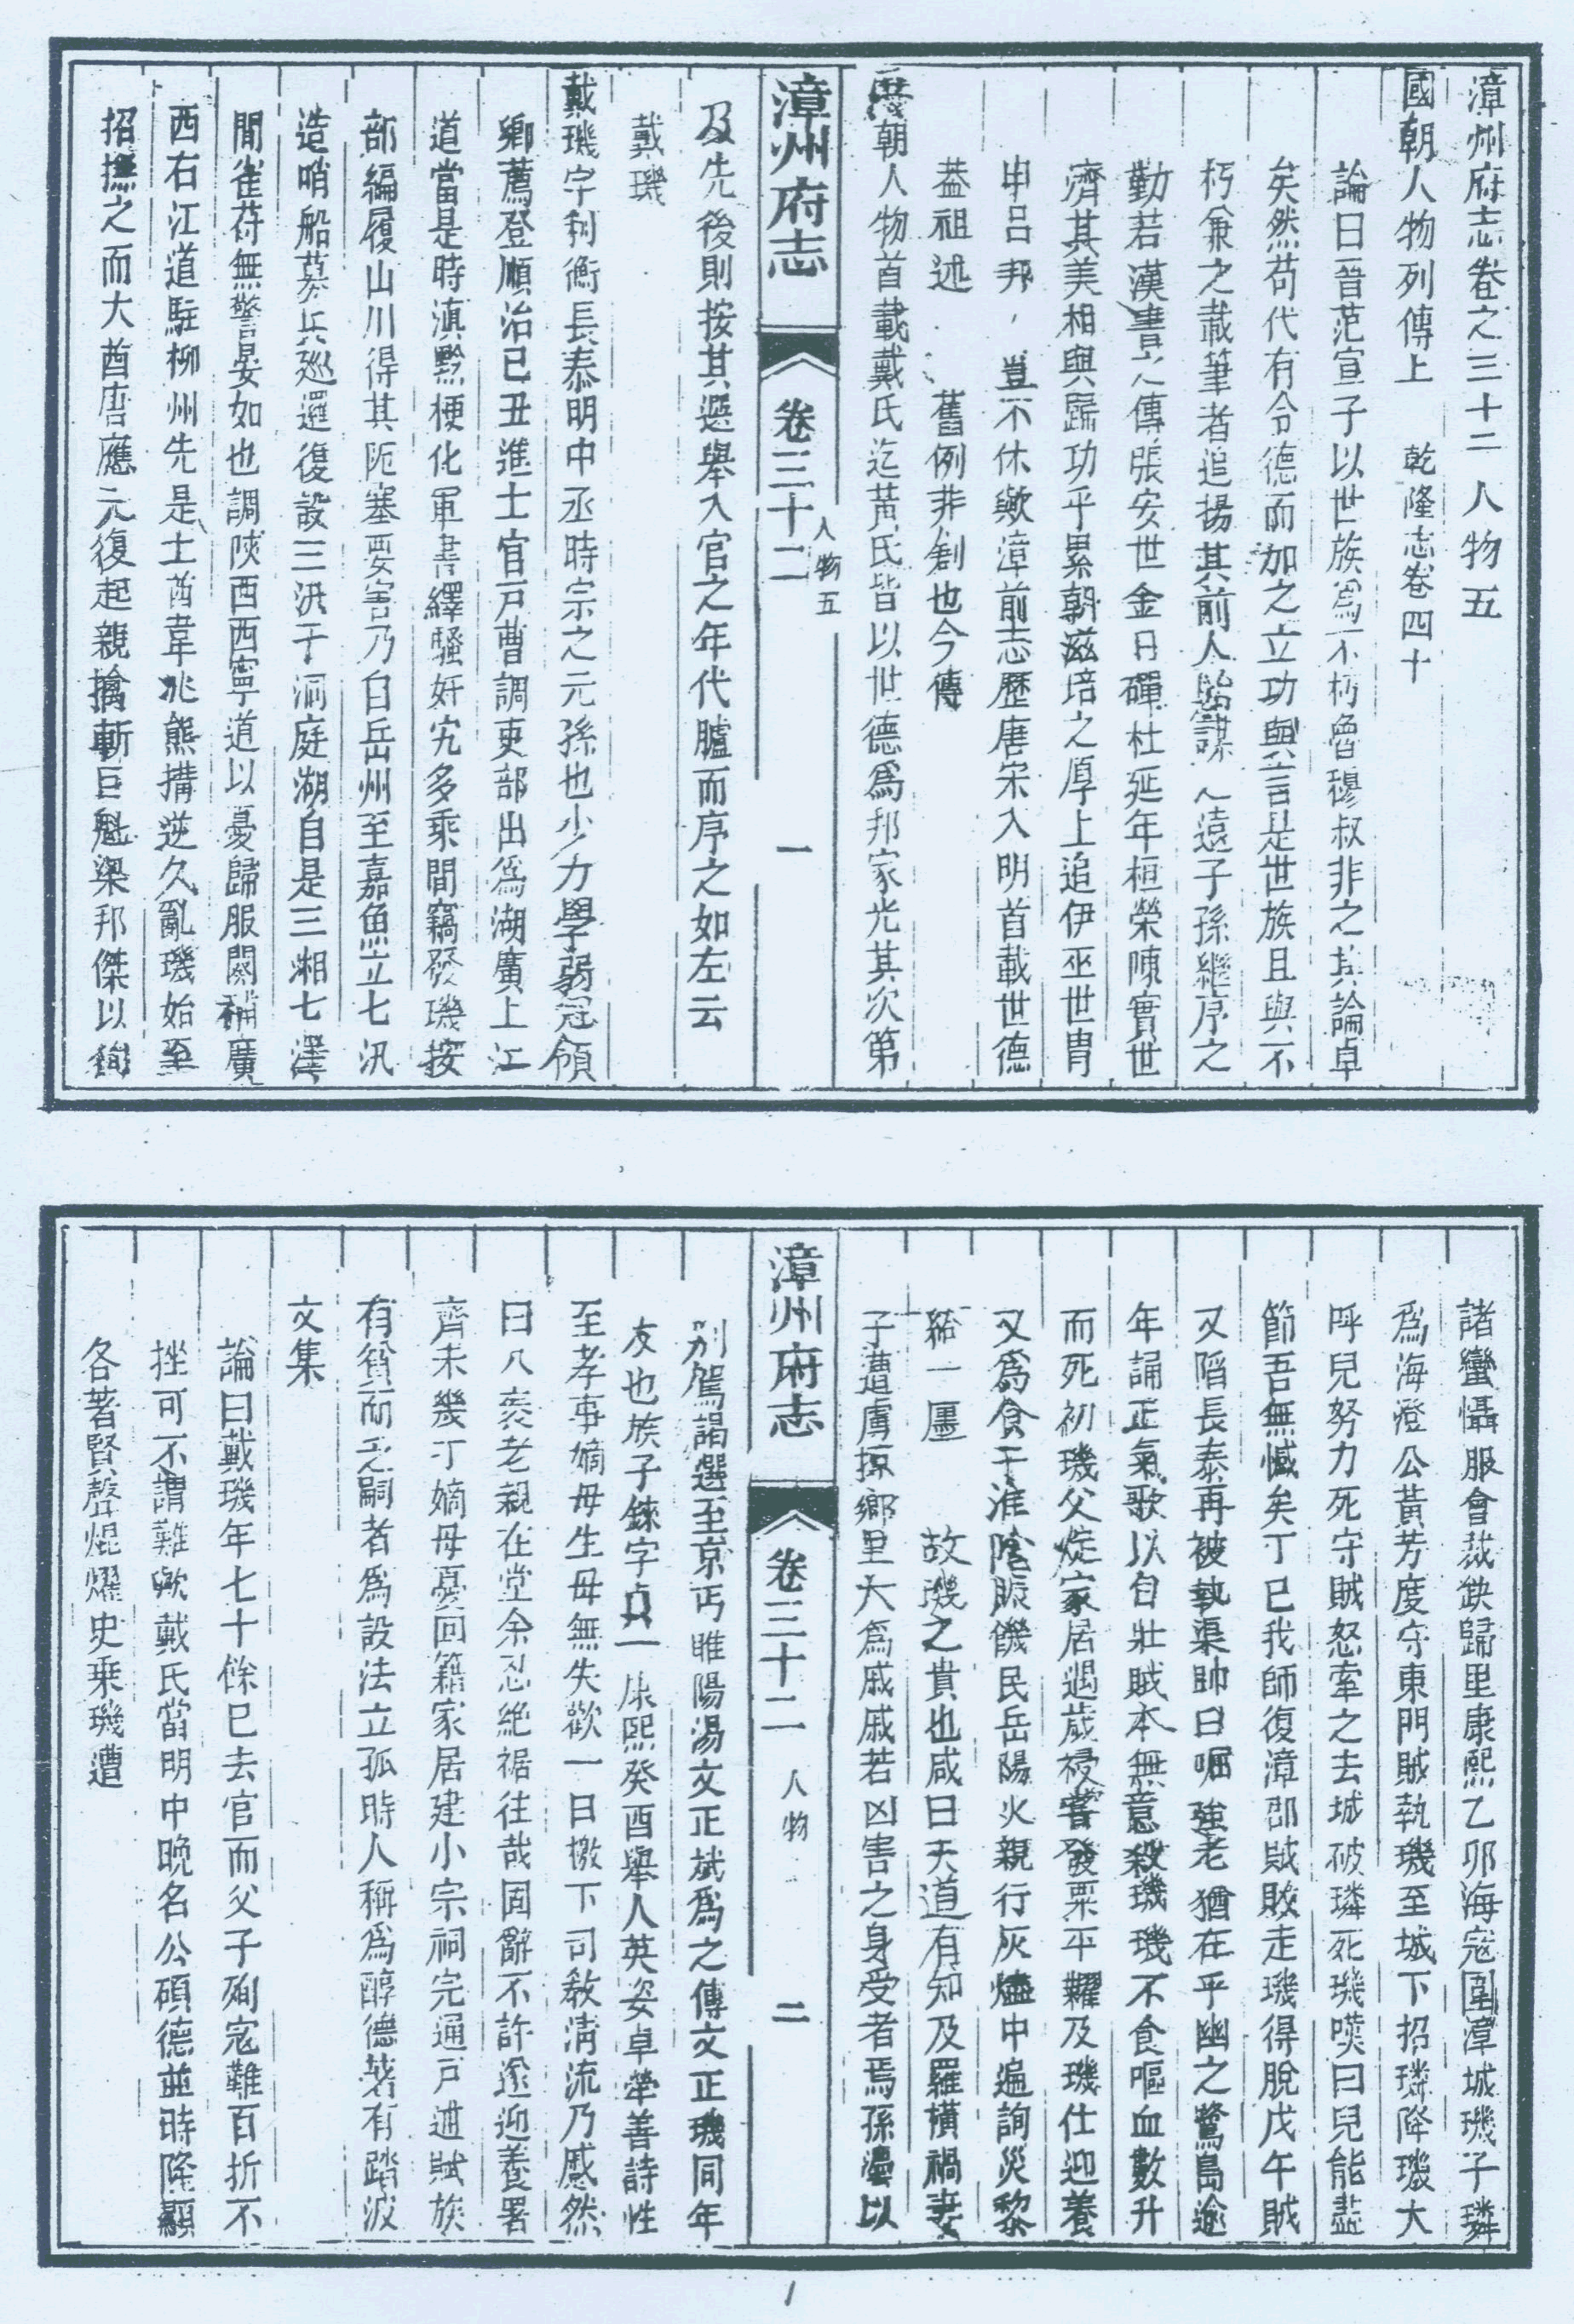 漳州府志卷之三十二 人物五
國朝人物列傳上 乾隆志卷四十
論曰晉范宣子以世族爲不朽魯穆叔非之其論卓
矣然苟代有令德而加之立功與言是世族且與不
朽兼之載筆者追揚其前人貽謀 遠子孫繼序之
勤若漢書 傳張安世金日磾杜延年桓榮陳寔世
濟其美相與歸功乎累朝滋培之厚上追伊巫世胄
申呂邦 豈不休歟漳前志歷唐宋入明首載世德
葢祖述 舊例非創也今傳
朝人物首載戴氏迄黃氏皆以世德爲邦家光其次第
漳州府志 卷三十二 人物五 一
及先後則按其選舉入官之年代臚而序之如左云
戴璣
戴璣字利衡長泰明中丞時宗之元孫也少力學弱冠領
鄉薦登順治己丑進士官戸曹調吏部出爲湖廣上江
道當是時滇黔梗化軍書繹騷奸宄多乘間竊發璣按
部編履山川得其阨塞要害乃自岳州至嘉魚立七汛
造哨船募兵廵邏復設三汛于洞庭湖自是三湘七澤
間雈苻無警晏如也調陝西西寧道以憂歸服闋補廣
西右江道駐柳州先是土酋韋兆熊搆逆久亂璣始至
招撫之而大酋唐應元復起親擒斬巨魁梁邦傑以徇
諸蠻懾服會裁缺歸里康熙乙卯海宼圍漳城璣子璘
爲海澄公黃芳度守東門賊執璣至城下招璘降璣大
呼兒努力死守賊怒牽之去城破璘死璣嘆曰兒能盡
節吾無憾矣丁巳我師復漳郡賊敗走璣得脫戊午賊
又陷長泰再被執渠帥曰崛強老猶在乎幽之鷺島逾
年誦正氣歌以自壯賊本無意殺璣璣不食嘔血數升
而死初璣父 家居遇歲祲嘗發粟平糶及璣仕迎養
又爲食于淮陰賑饑民岳陽火親行灰燼中遍詢災黎
給一廛 故璣之貴也咸曰天道有知及羅橫禍妻
子遭虜掠鄉里大爲戚戚若凶害之身受者焉孫 以
漳州府志 卷三十二 人物 二
別駕謁選至京丐睢陽湯文正斌爲之傳文正璣同年
友也族子錸字貞一康熙癸酉舉人英姿卓犖善詩性
至孝事嫡母生母無失歡一日檄下司敎淸流乃慼然
曰八袠老親在堂余忍絕裾往哉固辭不許遂迎養署
齊未幾丁嫡母憂回籍家居建小宗祠完通戸逋賦族
有貧而乏嗣者爲設法立孤時人稱爲醇德著有踏波
文集
論曰戴璣年七十餘已去官而父子殉宼難百折不
挫可不謂難歟戴氏當明中晚名公碩德並時隆顯
各著賢聲焜燿史乗璣遭